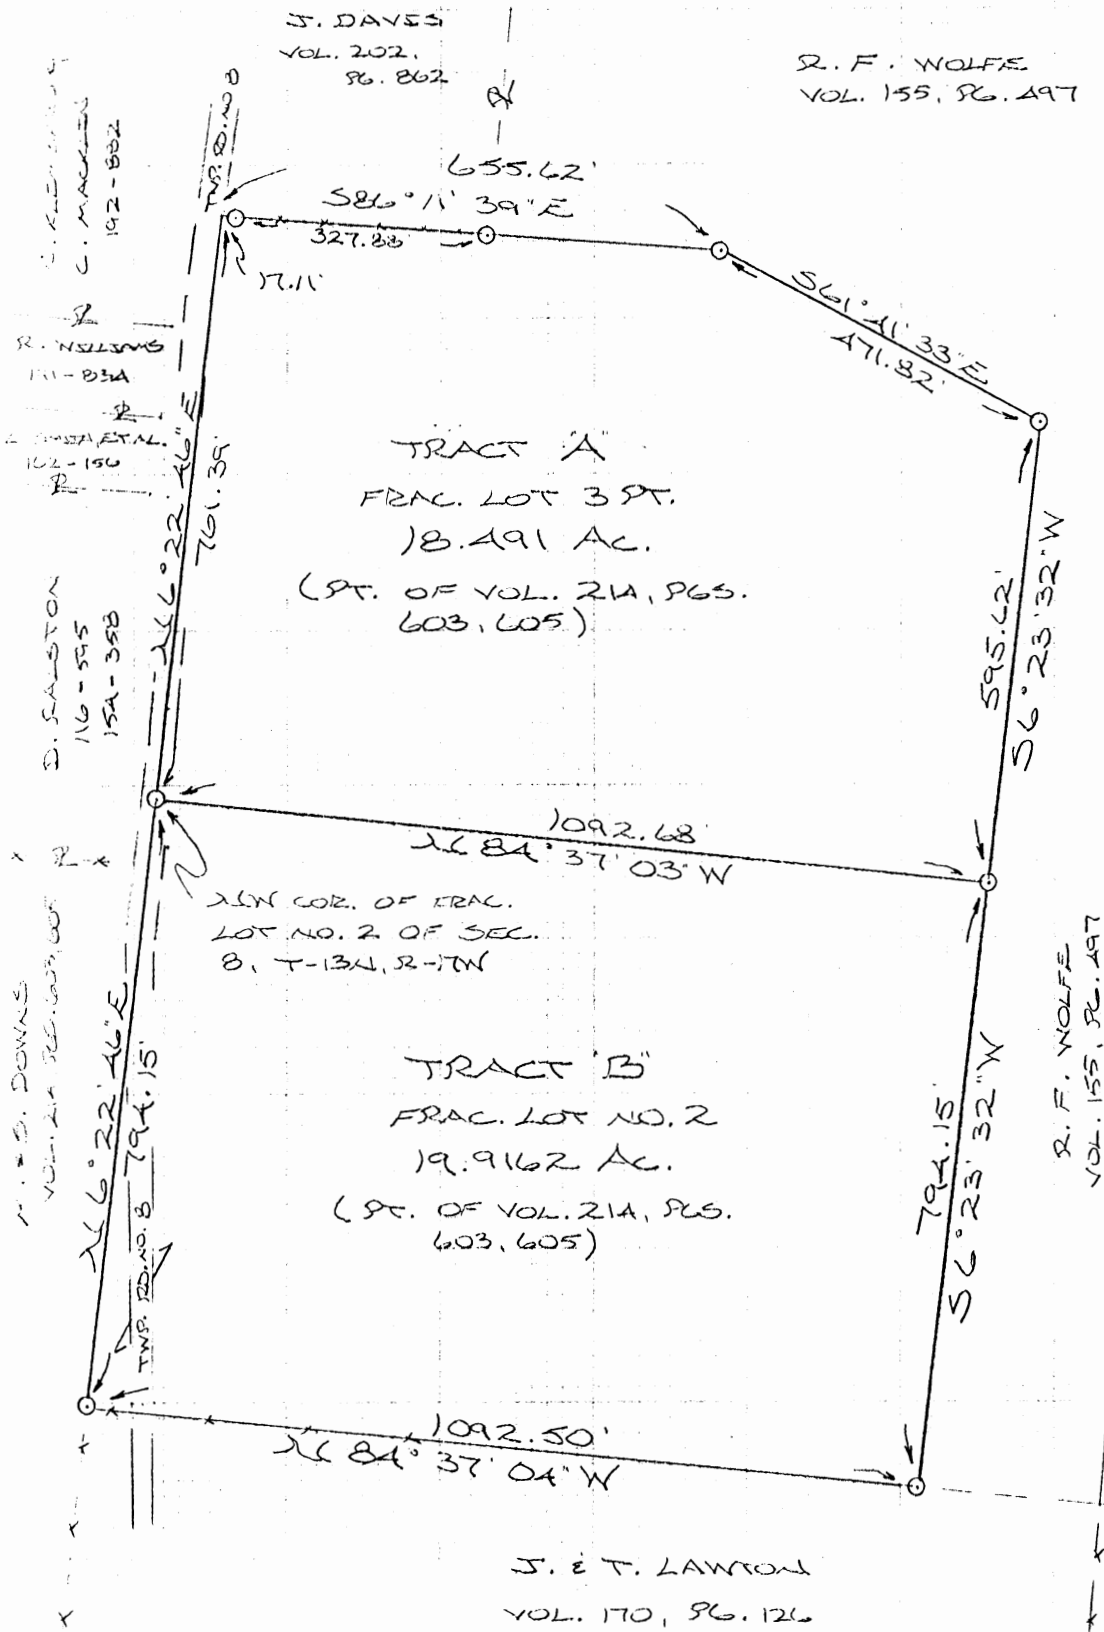 J. DAVIS
VOL. 202,
PG. 862
R. F. WOLFE
VOL. 155, PG. 497
C. MACKLEN
192-882
TWP. RD. NO 8
655.62'
S86°11'39"E
327.88'
17.11'
S61°41'33"E
471.82'
R. WILLIAMS
ET AL.
162-156
N6°22'46"E
761.39'
TRACT "A"
FRAC. LOT 3 PT.
18.491 AC.
(PT. OF VOL. 214, PGS.
603, 605)
595.62'
S6°23'32"W
D. RALSTON
116-595
154-358
1092.68'
N84°37'03"W
NW COR. OF FRAC.
LOT NO. 2 OF SEC.
8, T-13N, R-17W
DOWNS
VOL. 214 PGS. 603, 605
N6°22'46"E
794.15'
TWP. RD. NO. 8
TRACT "B"
FRAC. LOT NO. 2
19.9162 AC.
(PT. OF VOL. 214, PGS.
603, 605)
794.15'
S6°23'32"W
R. F. WOLFE
VOL. 155, PG. 497
1092.50'
N84°37'04"W
J. & T. LAWTON
VOL. 170, PG. 126